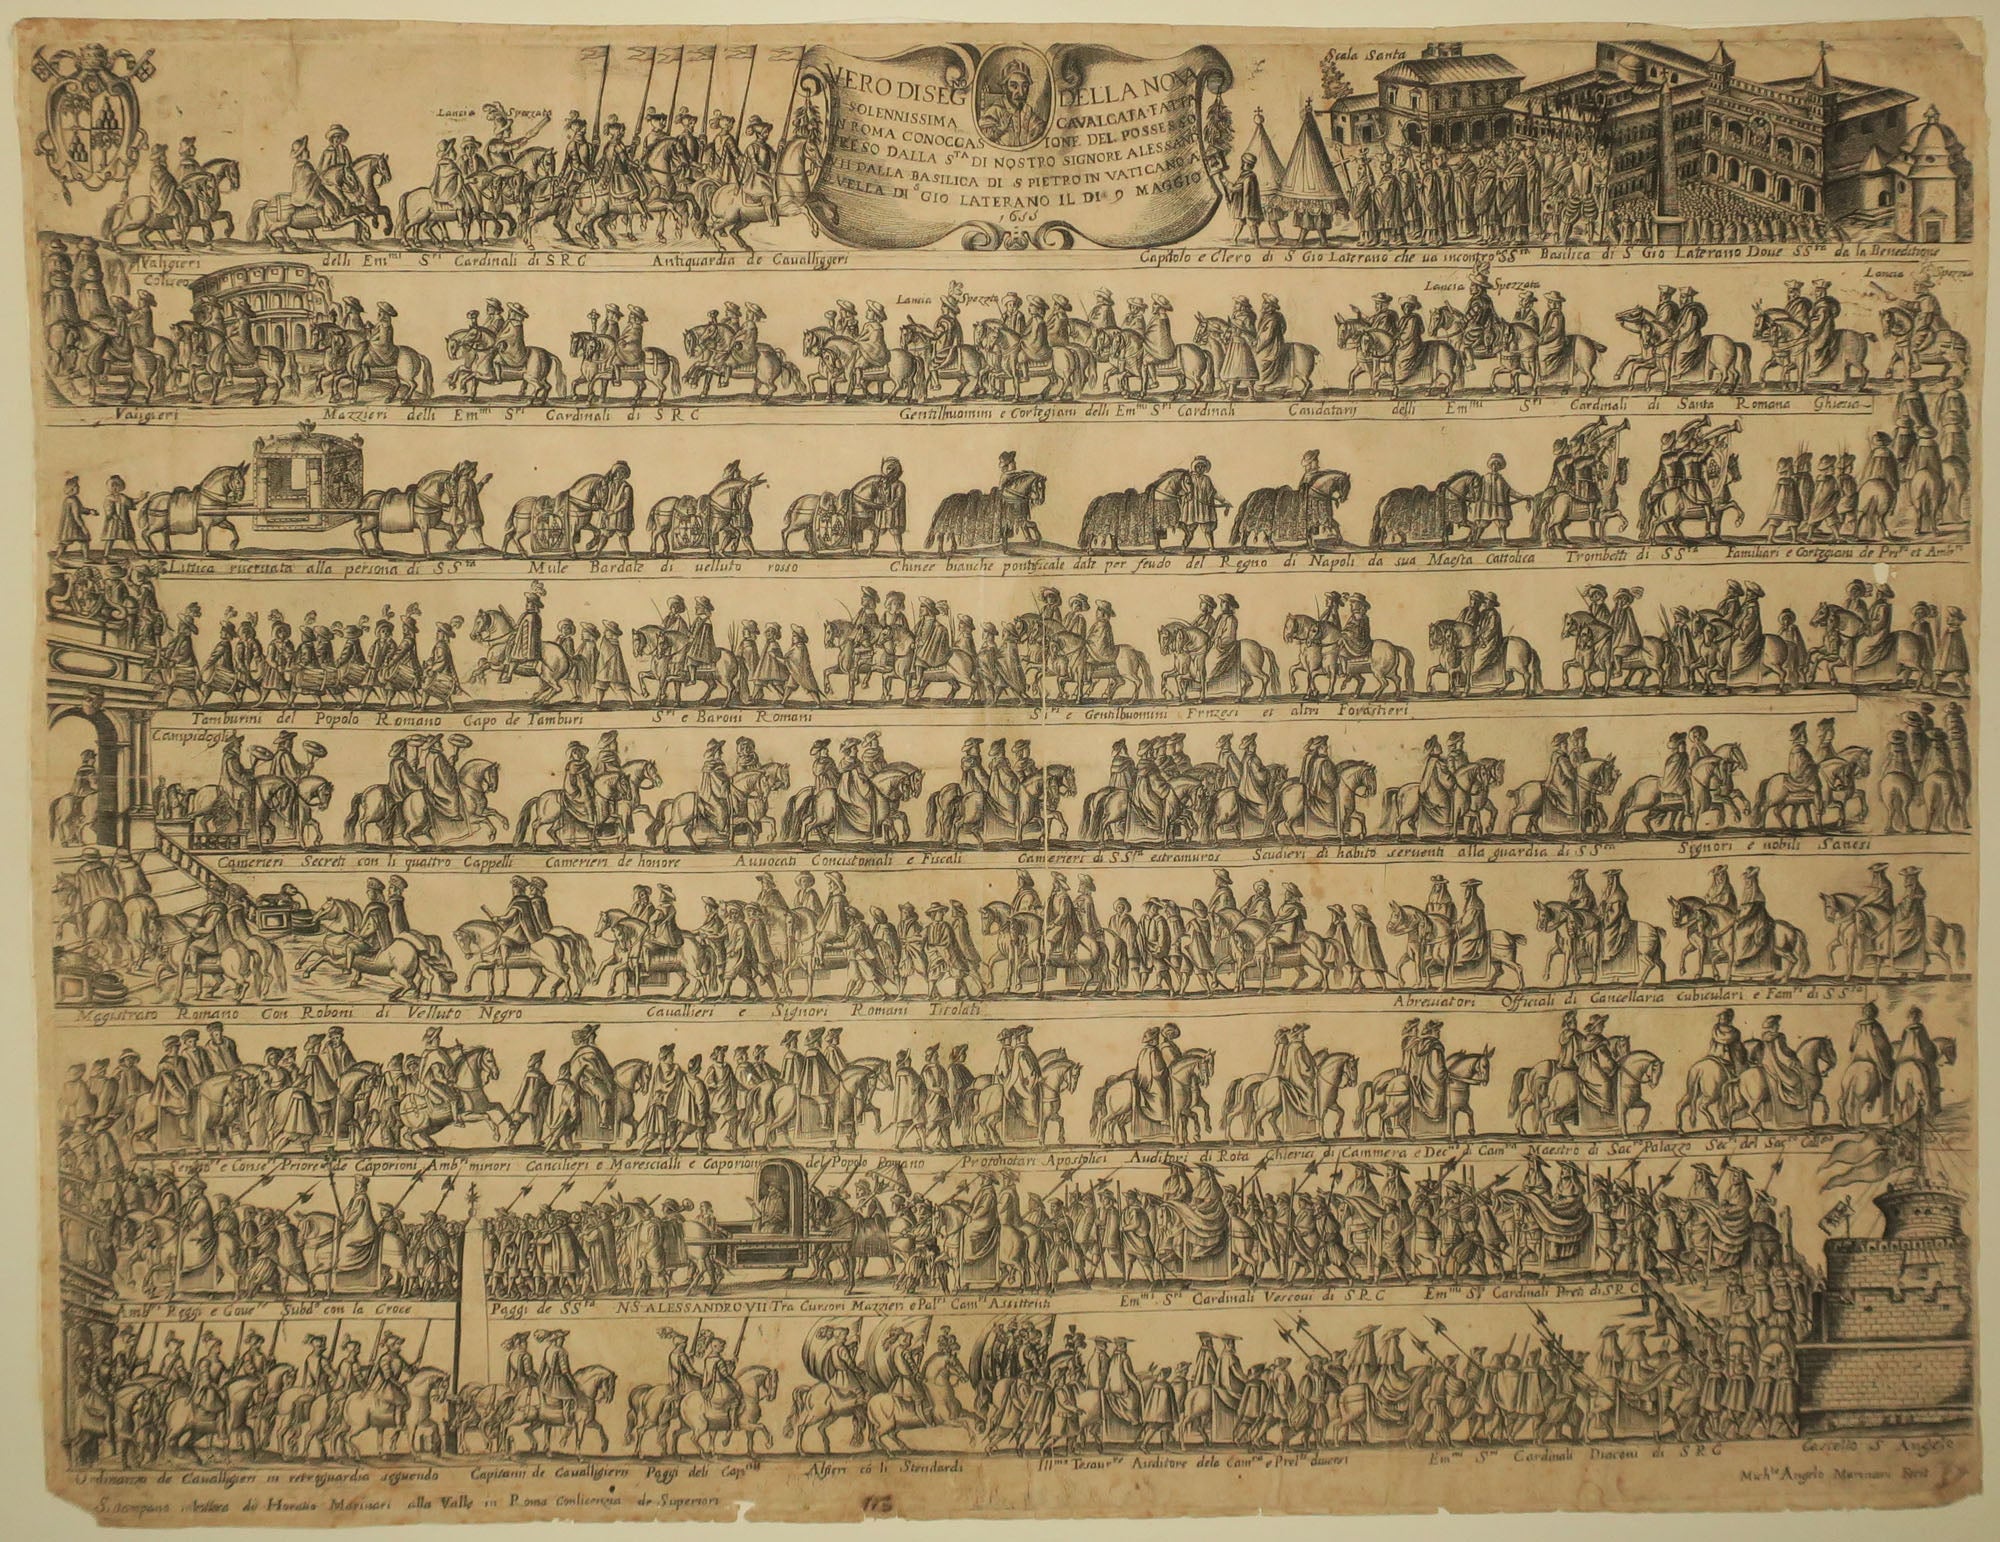 Lancia Spezzata
VERO DISEG.NO DELLA NOVA
SOLENNISSIMA CAVALCATA FATTA
IN ROMA CON OCCASIONE DEL POSSESSO
PRESO DALLA S.TA DI NOSTRO SIGNORE ALESSAND
VII DALLA BASILICA DI S PIETRO IN VATICANO A
QVELLA DI S GIO LATERANO IL DI 9 MAGGIO
1655
Scala Santa
Valigieri delli Em.mi S.ri Cardinali di S R C Antiguardia de Cavalliggeri
Capitolo e Clero di S Gio Laterano che va incontro SS.ta Basilica di S Gio Laterano Dove SS.ta da la Beneditione
Coliseo
Lancia Spezzata
Lancia Spezzata
Lancia Spezzata
Valigieri Mazzieri delli Em.mi S.ri Cardinali di S R C Gentilhuomini e Cortegiani delli Em.mi S.ri Cardinali Caudatarij delli Em.mi S.ri Cardinali di Santa Romana Ghiesia
Littica riveritata alla persona di SS.ta Mule Bardate di velluto rosso Chinee bianche pontificale date per feudo del Regno di Napoli da sua Maesta Cattolica Trombetti di SS.ta Familiari e Cortegiani de Pri.pi et Amb.ri
Tamburini del Popolo Romano Capo de Tamburi S.ri e Baroni Romani S.ri e Gentilhuomini Frnzesi et altri Forastieri
Campidoglio
Camerieri Secreti con li quattro Cappelli Camerieri de honore Avvocati Concistoriali e Fiscali Camerieri di SS.ta estramuros Scudieri di habito serventi alla guardia di SS.ta Signori e nobili Sanesi
Magistrato Romano Con Roboni di Velluto Negro Cavallieri e Signori Romani Titolati Abreviatori Officiali di Cancellaria Cubiculari e Fam.ri di SS.ta
Priore de Caporioni Amb.ri minori Cancilieri e Marescialli e Caporioni del Popolo Romano Protonotari Apostolici Auditori di Rota Chlerici di Cammera e Dec.no di Cam.ra Maestro di Sac.ro Palazzo Sec.ri del Sac.ro
Amb.ri Reggi e Gove.re Subd.o con la Croce Paggi de SS.ta NS ALESSANDRO VII Tra Cursori Mazzieri e Pal.ri Cam.ri Assittenti Em.mi S.ri Cardinali Vescovi di S R C Em.mi S.ri Cardinali Preti di S R C
Ordinanza de Cavalligieri in retroguardia seguendo Capitani de Cavalligieri Paggi deli Cap.ni Alfieri có li Stendardi Ill.mo Tesaur.re Auditore dela Cam.ra e Prel.ti diversi Em.mi S.ri Cardinali Diaconi di S R C Castello S Angelo
Mich.le Angelo Marinari Fecit
Si stampano da Horatio Marinari alla Valle in Roma Con licenzia de Superiori